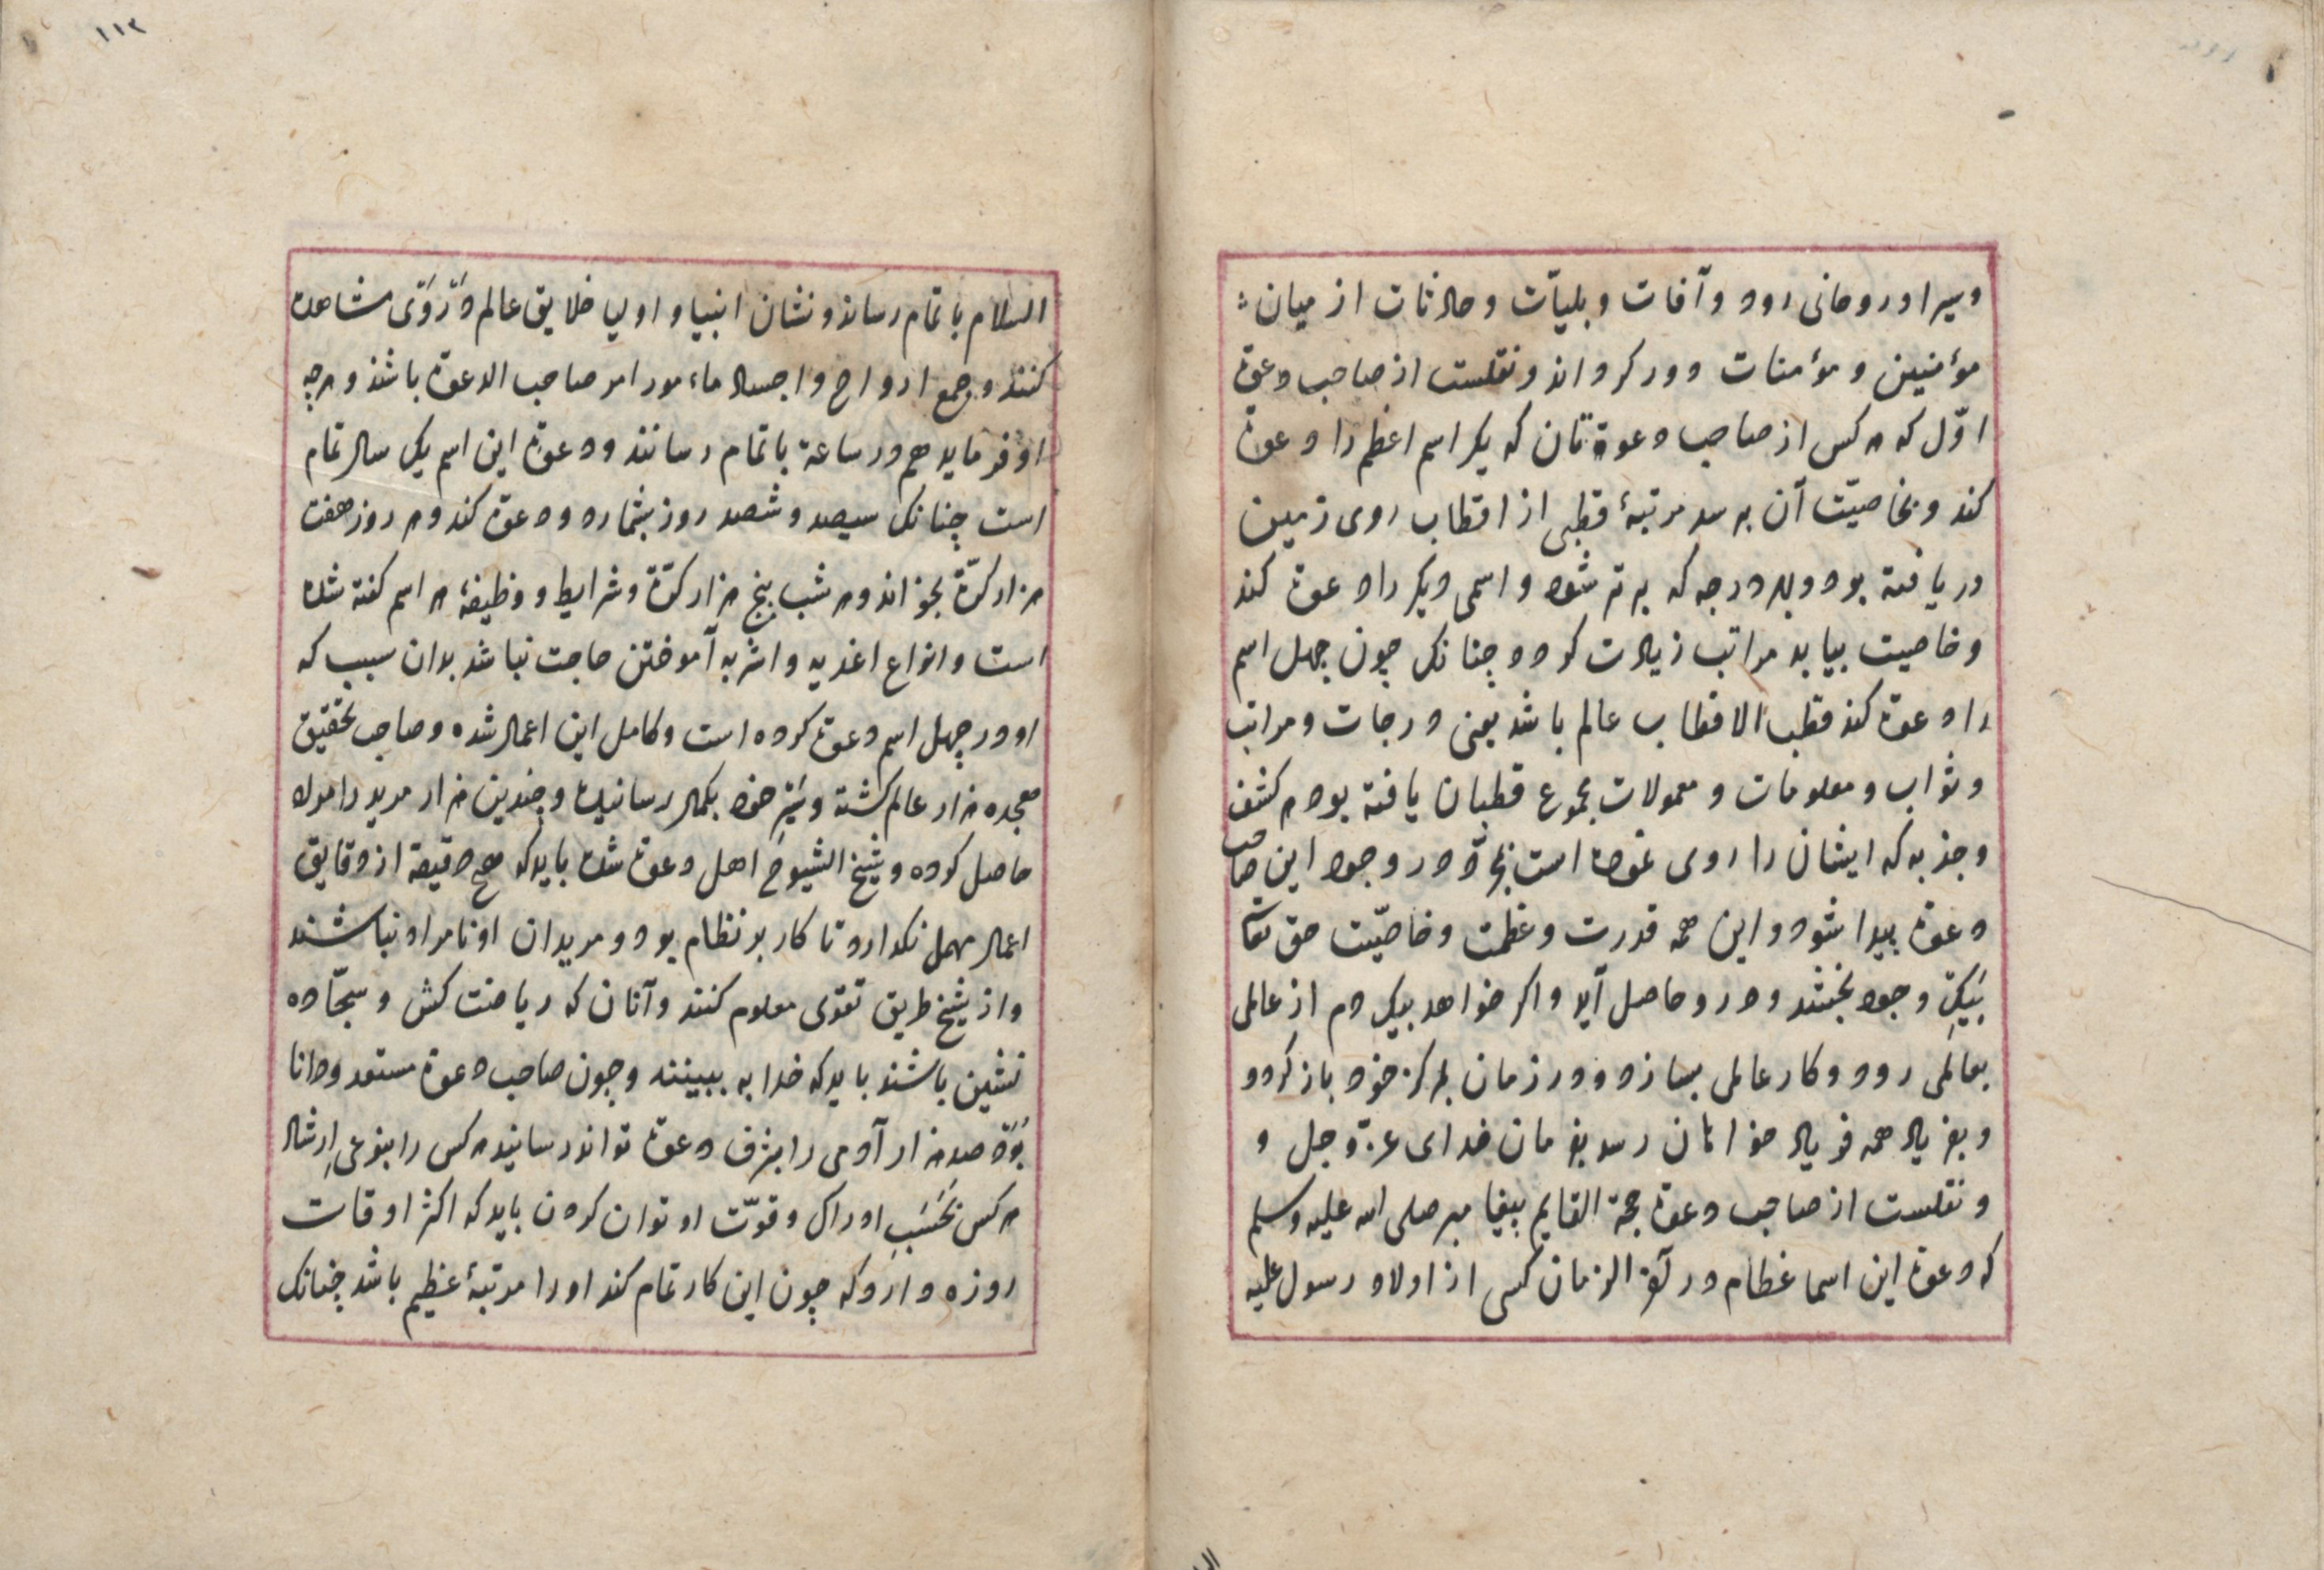 وسیر او روحانی رود و آفات و بلیّات و حادثات از میان
مؤمنین و مؤمنات دور کرداند و نقلست از صاحب دعوة
اوّل که هر کس از صاحب دعوة تان که یکر اسم اعظم را دعوة
کند و بخاصیّت آن برسد مرتبهٔ قطبی از اقطاب روی زمین
دریافته بود و بهر درجه که برتر شود و اسمی دیکر را دعوة کند
و خاصیت بیابد مراتب زیادت کردد چنانک چون چهل اسم
را دعوة کند قطب الاقطاب عالم باشد یعنی درجات و مراتب
و ثواب و معلومات و معمولات مجموع قطبان یافته بود هر کشف
و جذبه که ایشان را روی نموده است در وجود این صاحب
دعوة پیدا شود و این همه قدرت و عظمت و خاصّیت حق تعالی
بیک وجود بخشد و درو حاصل آید و اکر خواهد بیک دم از عالمی
بعالمی رود و کار عالمی بسازد و در زمان بمرکز خود باز کردد
و بفریاد همه فریاد خواهان رسد بفرمان خدای عزّ و جل و
و نقلست از صاحب دعوة حجة القایم پیغامبر صلی الله علیه وسلم
که دعوة این اسما عظام در آخر الزمان کسی از اولاد رسول علیه
١١٢
السلام باتمام رساند و نشان انبیا و اولیا خلایق عالم در وی مشاهده
کنند و جمع ارواح و اجساد ماءمور امر صاحب الدعوة باشند و هرچه
او فرماید هم در ساعة باتمام رسانند و دعوة این اسم یک سال تمام
است چنانک سیصد و شصد روز بشمارد و دعوة کند و هر روز هفت
هزار کرّة بخواند و هر شب پنج هزار کرّة و شرایط و وظیفهٔ هر اسم کفته شده
است و انواع اغدیه و اشربه آموختن حاجت نباشد بدان سبب که
او در چهل اسم دعوة کرده است و کامل این اعمال شده و صاحب تحقیق
هجده هزار عالم کشته و سیر خود بکمال رسانیده و چندین هزار مرید را مراد
حاصل کرده و شیخ الشیوخ اهل دعوة شده باید که هیچ دقیقة از دقایق
اعمال مهمل نکدارد تا کار بر نظام بود و مریدان او نامراد نباشند
و از شیخ طریق تقوی معلوم کنند و آنان که ریاضت کش و سجّاده
نشین باشند باید که خدا به ببینند و چون صاحب دعوة مستعد و دانا
بود صد هزار آدمی را بشرف دعوة تواند رسانید هر کس را بنوعی ارشاد
هر کس بحسب ادراک و قوّت او توان کردن باید که اکثر اوقات
روزه دارد که چون این کار تمام کند او را مرتبهٔ عظیم باشد چنانک